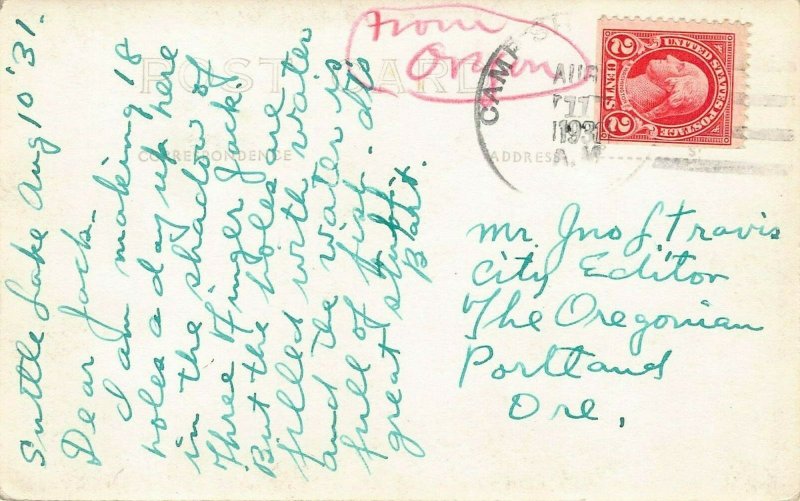 Suttle Lake Aug 10 '31.
Dear Jack -
I am making 18
holes a day up here
in the shadow of
Three Finger Jack.
But the holes are
filled with water
and the water is
full of fish. It's
great stuff.
POST CARD
CORRESPONDENCE
ADDRESS
From
CAMP
AUG
11
193
A.M
UNITED STATES POSTAGE
2 CENTS 2
Mr. Jno L Travis
City Editor
The Oregonian
Portland
Ore.